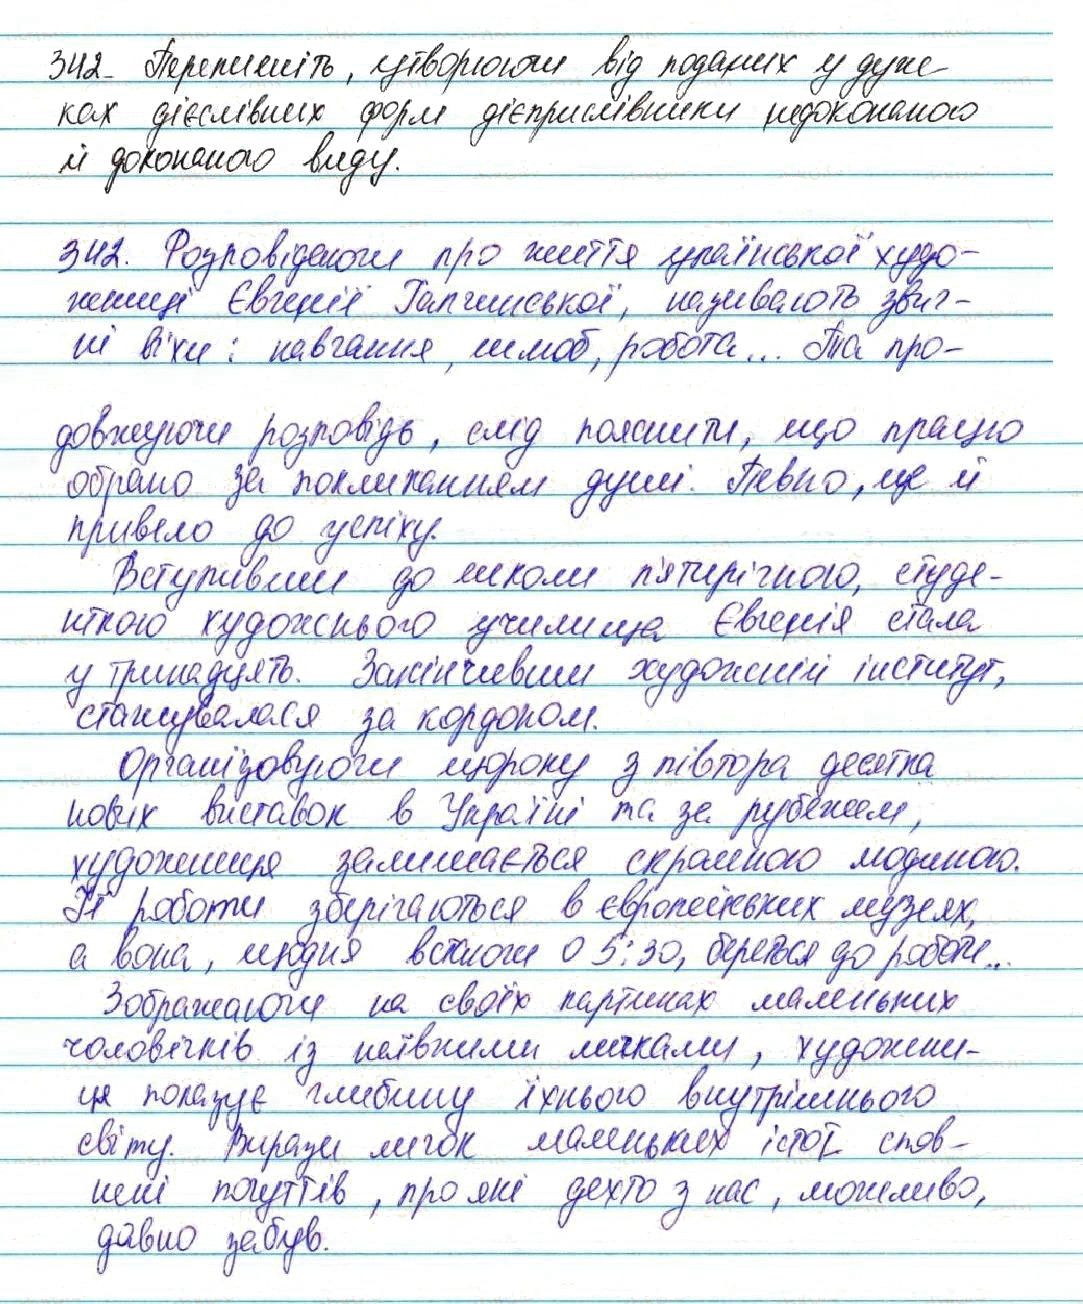 342. Перепишіть, утворюючи від поданих у дуж-
ках дієслівних форм дієприслівники недоконаного
й доконаного виду.
342. Розповідаючи про життя української худо-
жниці Євгенії Гапчинської, називають звич-
ні віхи: навчання, шлюб, робота... Та про-
довжуючи розповідь, слід пояснити, що працю
обрано за покликанням душі. Певно, це й
привело до успіху.
Вступивши до школи п'ятирічною, студе-
нткою художнього училища Євгенія стала
у тринадцять. Закінчивши художній інститут,
стажувалася за кордоном.
Організовуючи щороку з півтора десятка
нових виставок в Україні та за рубежем,
художниця залишається скромною людиною.
Її роботи зберігаються в європейських музеях,
а вона, щодня встаючи о 5:30, береться до роботи...
Зображаючи на своїх картинах маленьких
чоловічків із наївними личками, художни-
ця показує глибину їхнього внутрішнього
світу. Вирази личок маленьких істот спов-
нені почуттів, про які дехто з нас, можливо,
давно забув.